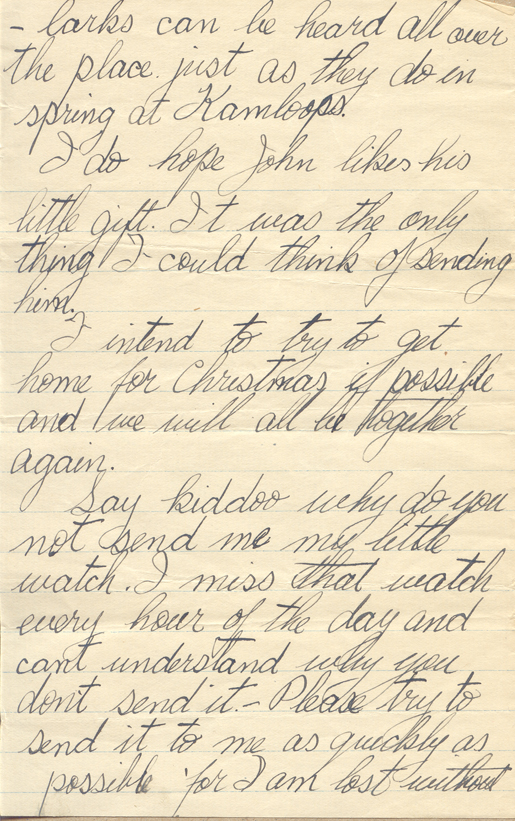 - larks can be heard all over
the place. just as they do in
spring at Kamloops.
I do hope John likes his
little gift. It was the only
thing I could think of sending
him.
I intend to try to get
home for Christmas if possible
and we will all be together
again.
Say kiddoo why do you
not send me my little
watch. I miss that watch
every hour of the day and
cant understand why you
don't send it. - Please try to
send it to me as quickly as
possible for I am lost without